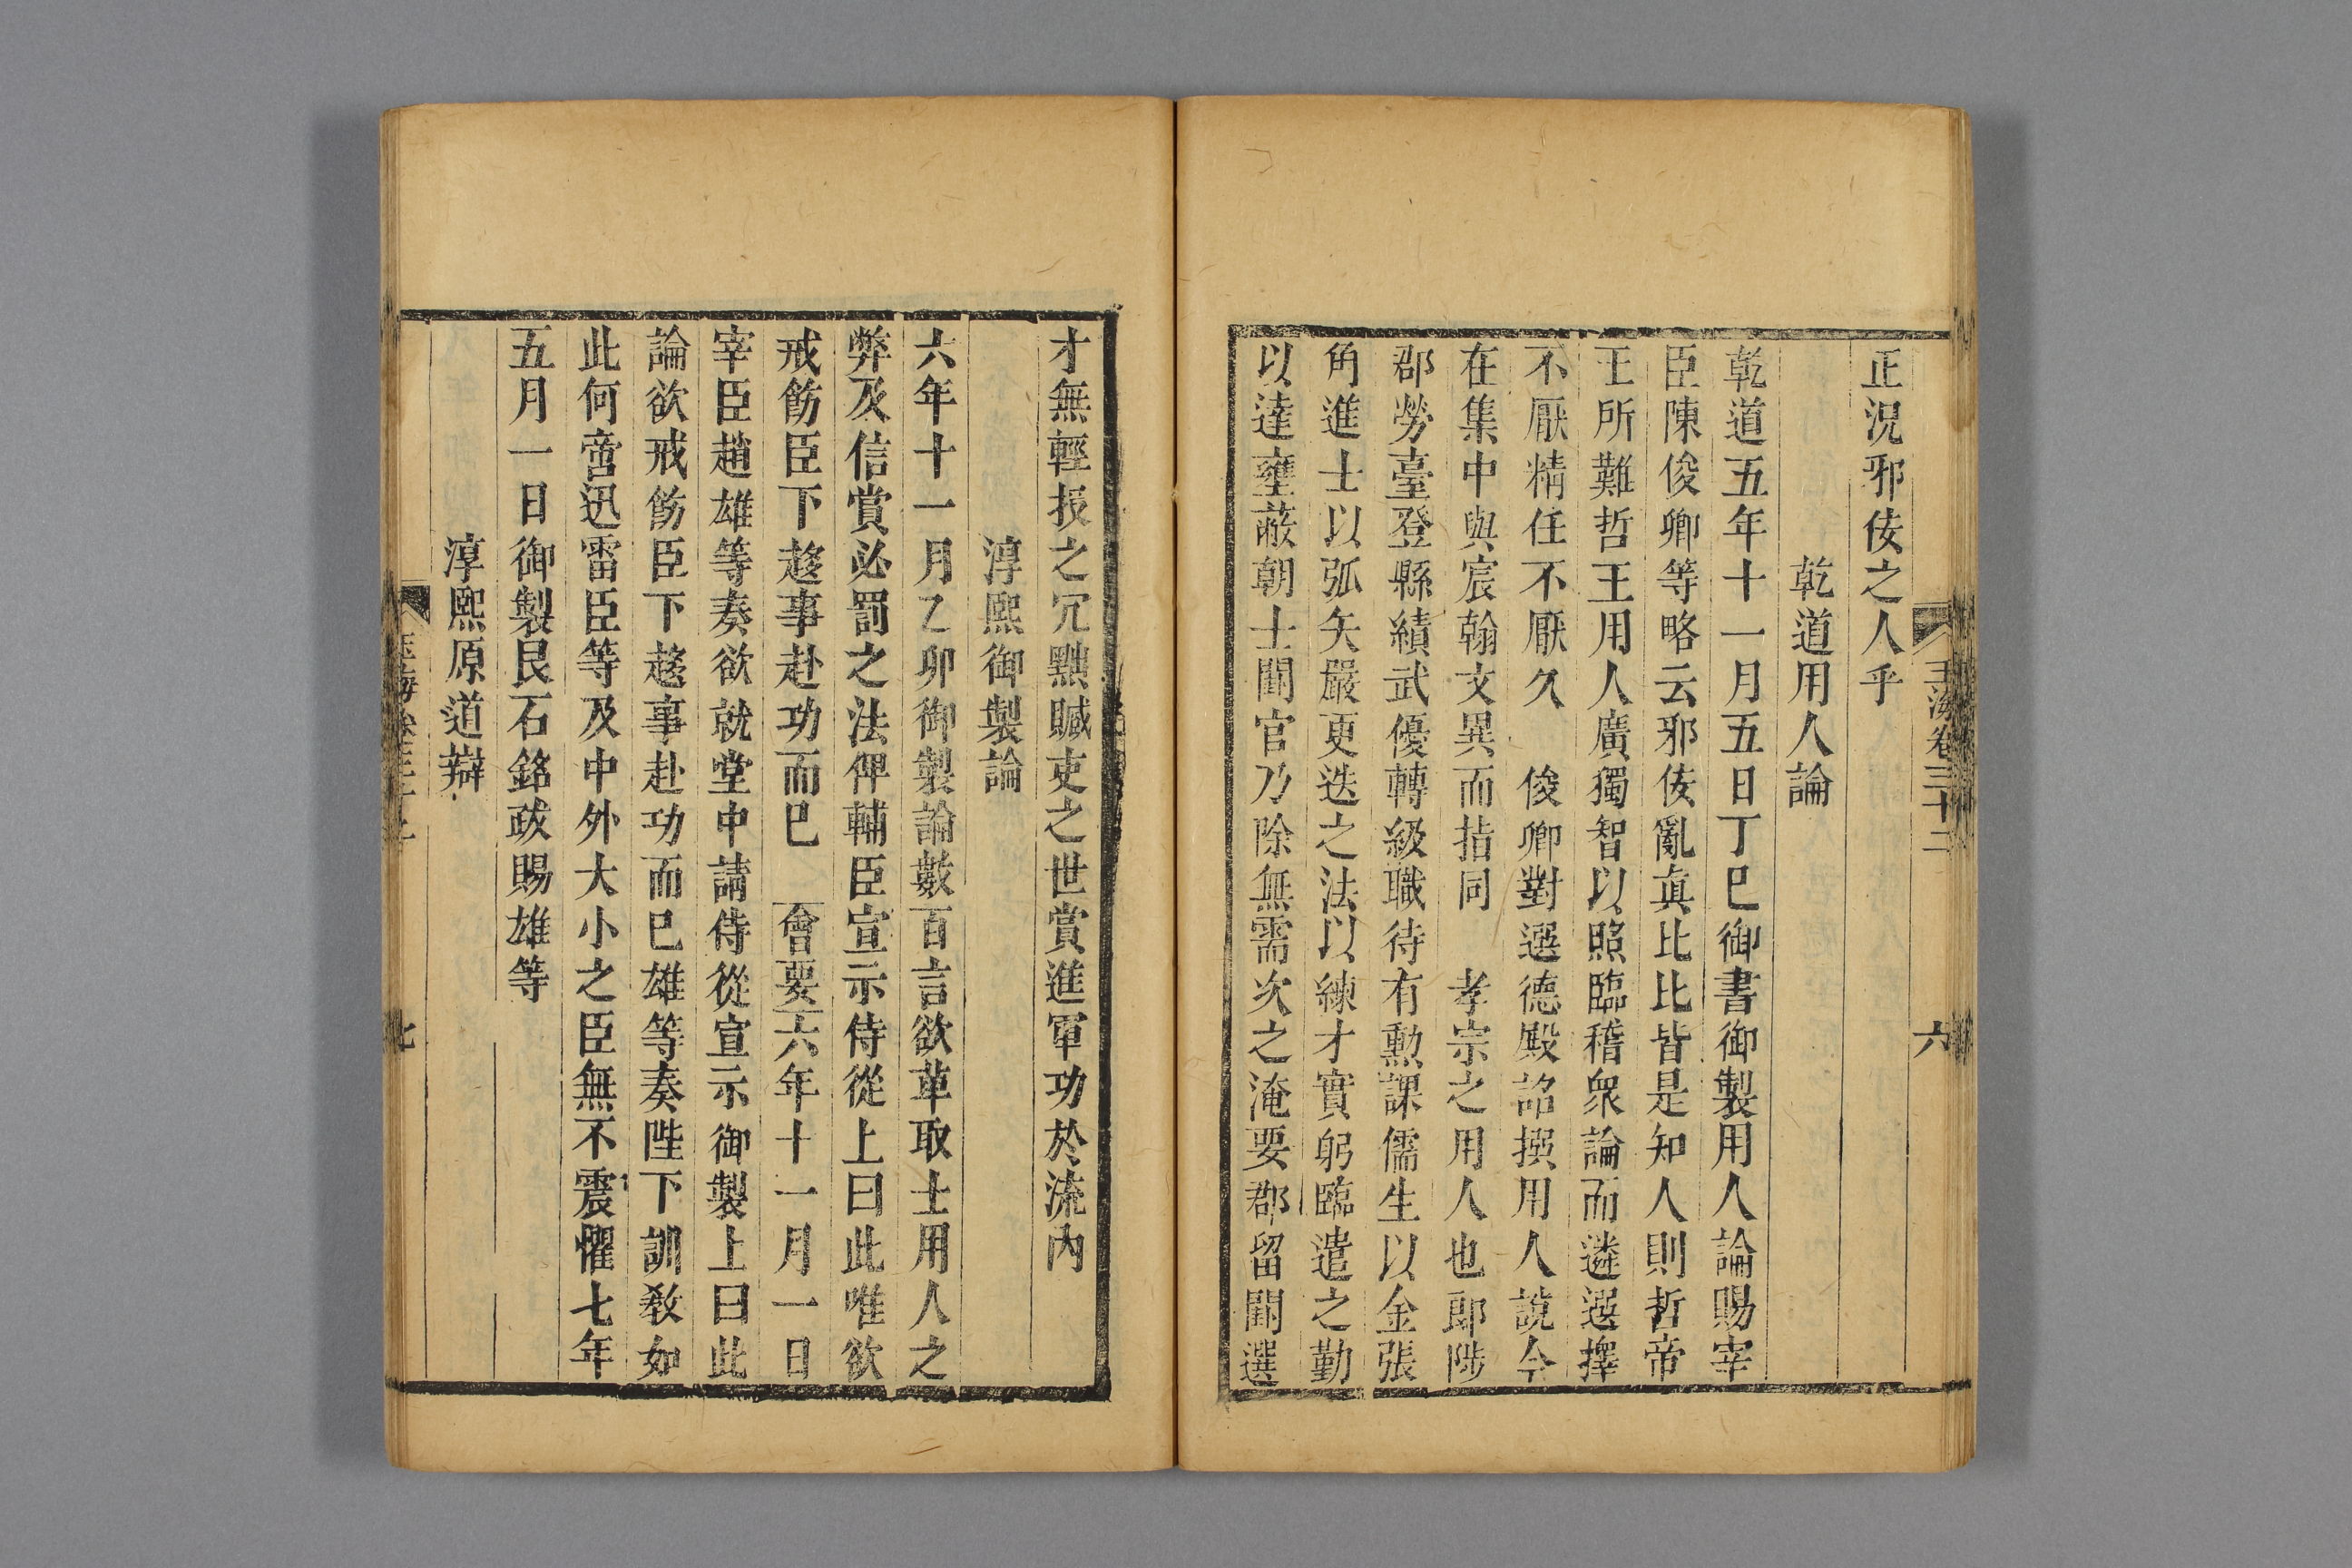 玉海卷三十二
六
正況邪佞之人乎
乾道用人論
乾道五年十一月五日丁巳御書御製用人論賜宰
臣陳俊卿等略云邪佞亂眞比比皆是知人則哲帝
王所難哲王用人廣獨智以照臨稽衆論而遴選擇
不厭精任不厭久 俊卿對選德殿詔撰用人說今
在集中與宸翰文異而指同 孝宗之用人也郞陟
郡勞臺登縣績武優轉級職待有勲課儒生以金張
角進士以弧矢嚴更迭之法以練才實躬臨遣之勤
以達壅蔽朝士闕官乃除無需次之淹要郡留闕選
才無輕授之冗黜贓吏之世賞進軍功於流內
淳熙御製論
六年十一月乙卯御製論數百言欲革取士用人之
弊及信賞必罰之法俾輔臣宣示侍從上曰此唯欲
戒飭臣下趍事赴功而巳 會要六年十一月一日
宰臣趙雄等奏欲就堂中請侍從宣示御製上曰此
論欲戒飭臣下趍事赴功而巳雄等奏陛下訓敎如
此何啻迅雷臣等及中外大小之臣無不震懼七年
五月一日御製艮石銘跋賜雄等
淳熙原道辯
玉海卷三十二
七